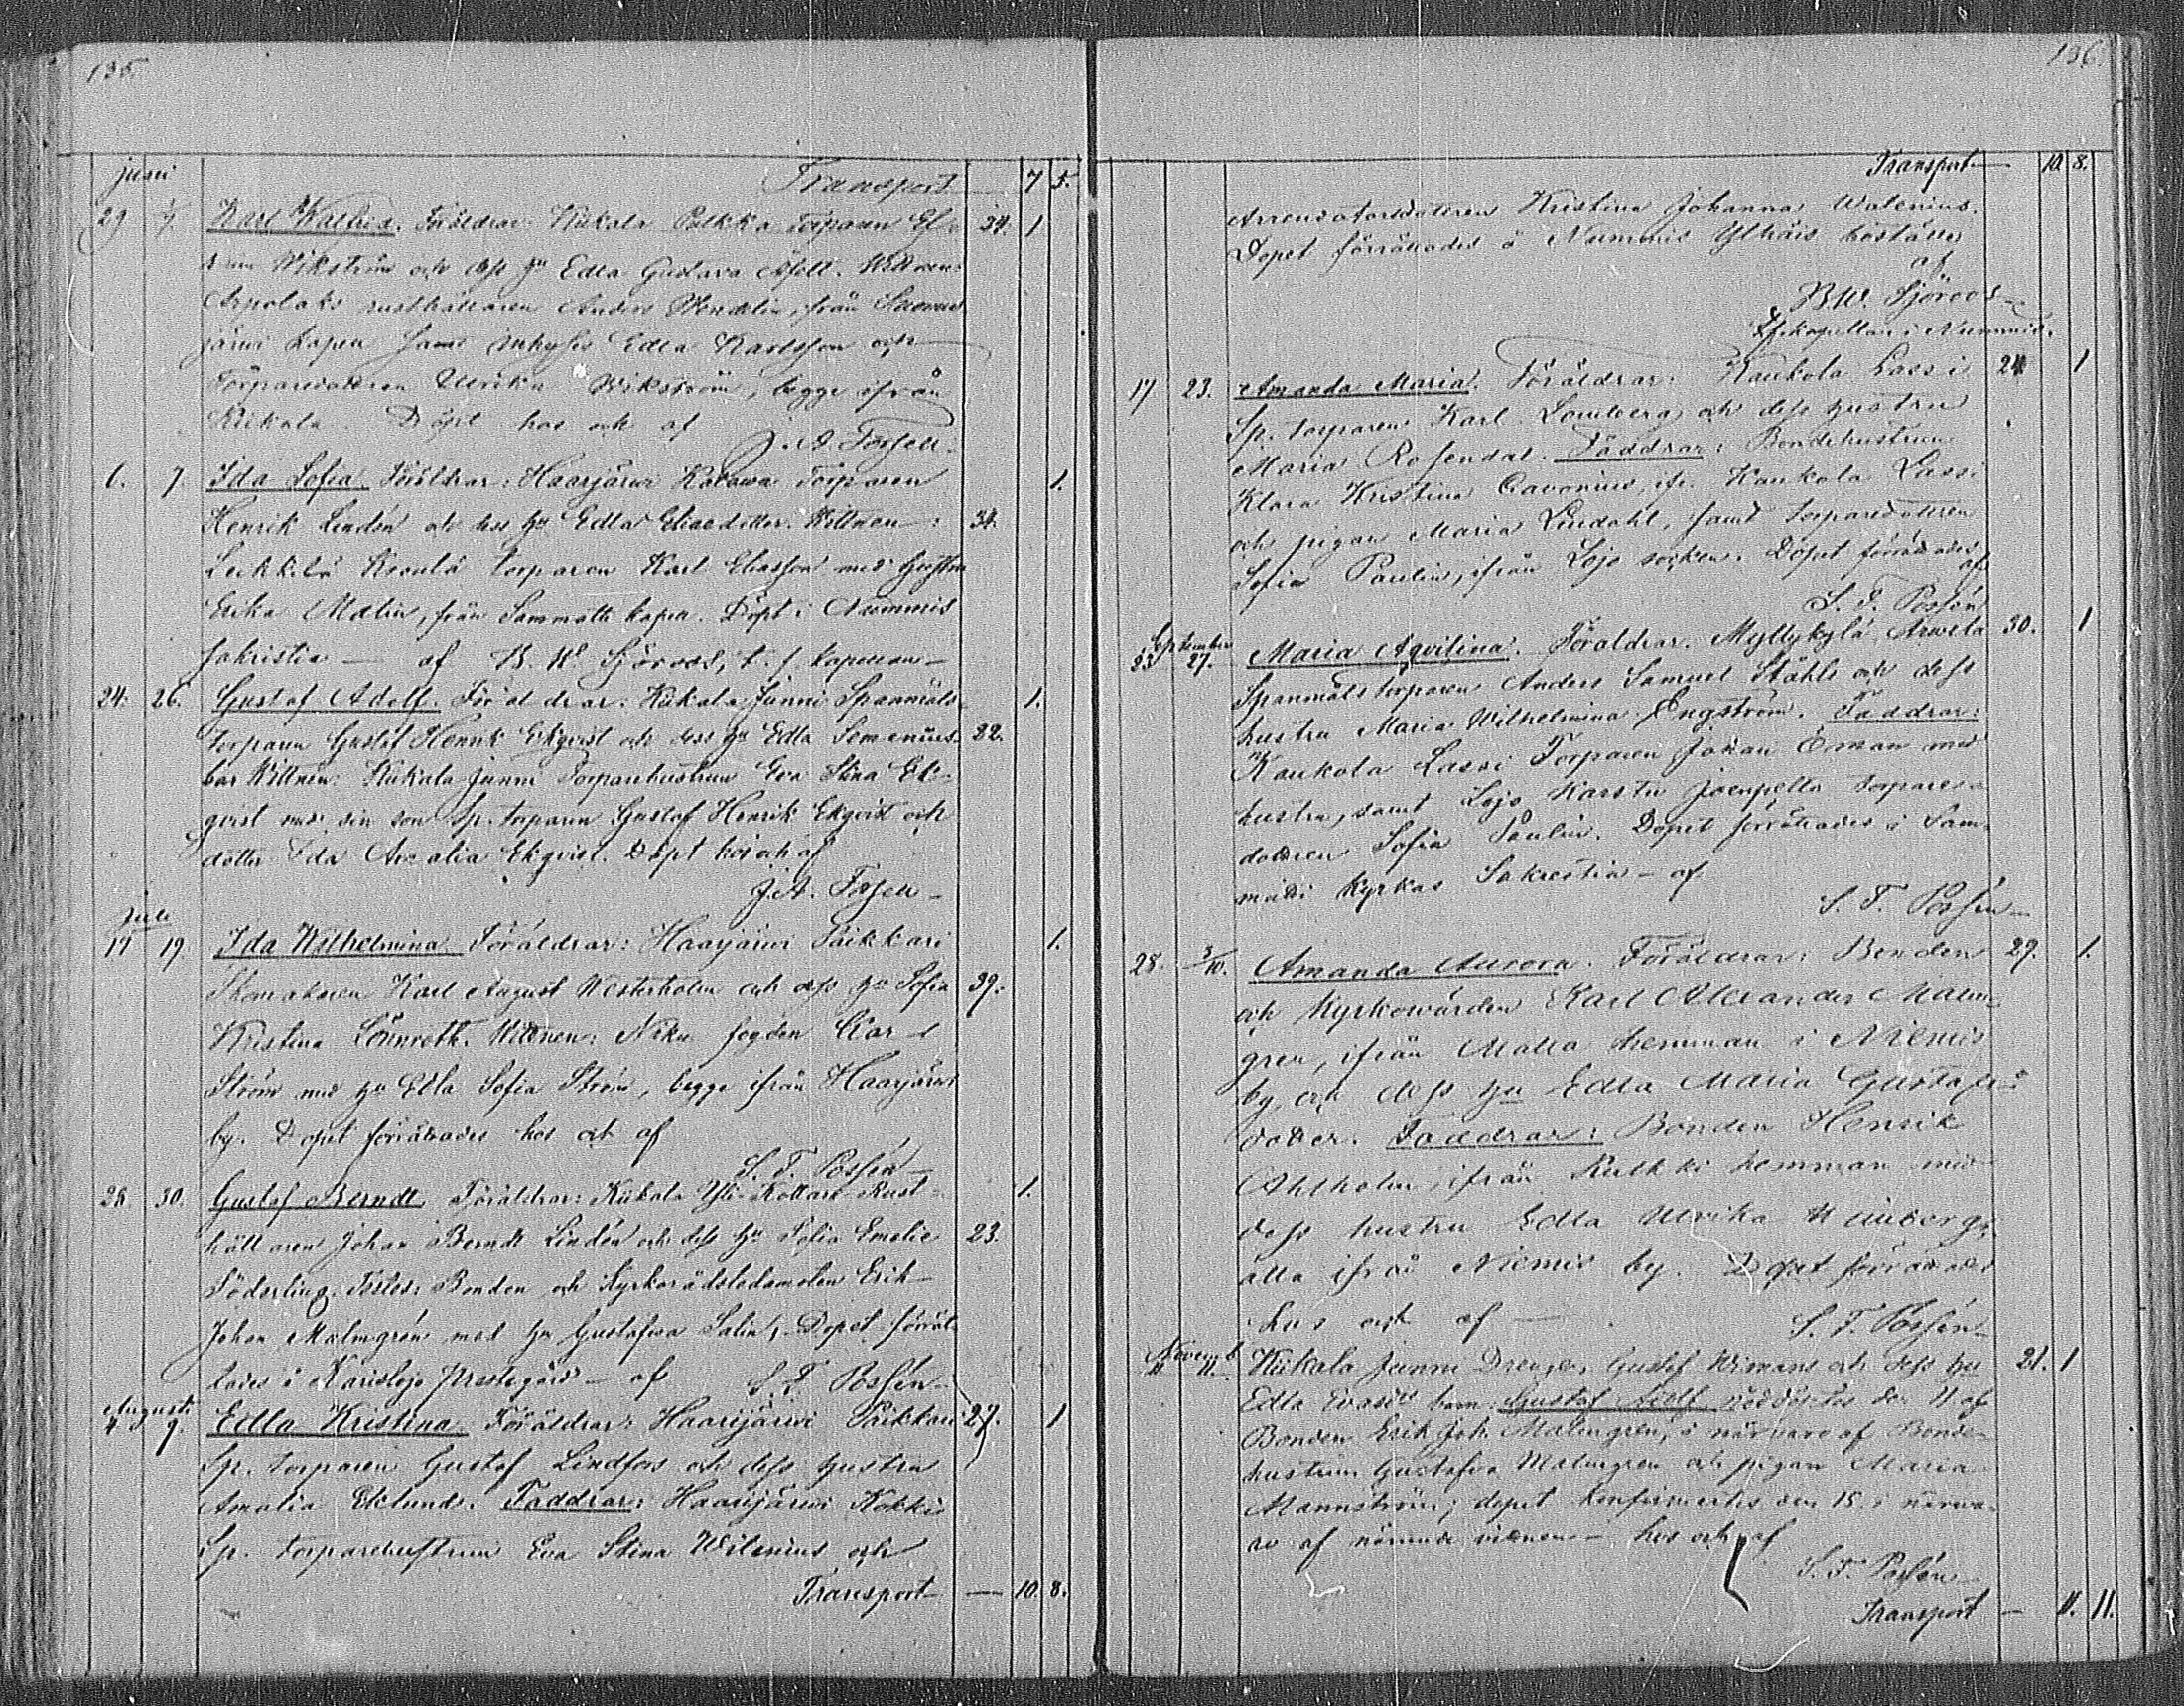 135.
juni
Transport 7 5.
29 1/7. Karl Walfrid. Föräldrar: Kiikala Pelkka Torparen 34. 1
Wikström och dess hu Edla Gustava Wittnen:
Arpolaks rusthållaren Anders Wendelin, från
järwi kapell samt Edla Karlsson och
Torparedottren Ulrika Wikström, begge ifrån
Kiikala. Döpt hos och af
J. A. Forsell.
6. 7. Ida Sofia. Föräldrar: Haarjärwi Torparen 1.
Henrik Lindén och dess hu Edla Eliaedotter. Wittnen: 34.
Leikkilä torparen Karl Eliasson med hustru
Erika Malin, från Sammatti kapell. Döpt i Nummis
Sakristia — af B. W. Sjöroos, t. f. kapellan —
24. 26. Gustaf Adolf. Föräldrar: Kiikala Junni Spanmåls- 1.
torparen Gustaf Henrik Ekqvist och dess hu Edla 22.
Wittnen: Kiikala Junni Torparehustrun Eva Stina Ek-
qvist med sin son Sp. torparen Gustaf Henrik Ekqvist och
dotter Ida Amalia Ekqvist. Döpt hos och af
J. A. Forsell —
Juli
17 19. Ida Wilhelmina Föräldrar: Haarjärwi Paikkari 1.
Skomakaren Karl August Westerholm och dess hu Sofia 39.
Kristina Lönnroth. Wittnen: fogden Karl
Ström med hu Edla Sofia Ström, begge ifrån Haarjärwi
by. Dopet förrättades hos och af
S. T. Possén
28. 30. Gustaf Berndt. Föräldrar: Kiikala Yli-Kottari Rust- 1.
hållaren Johan Berndt Lindén och dess hu Sofia Emelie 23.
Söderling. Testes: Bonden och kyrkorådsledamoten Erik
Johan Malmgrén med hu Gustafwa Salin. Dopet förrät-
tades i Karislojo Prestgård — af S. T. Possén —
Augusti
4 9. Edla Kristina. Föräldrar: Haarijärwi Paikkari 27. 1
Sp. torparen Gustaf Lindfors och dess hustru
Amalia Eklund. Faddrar: Haarijärwi Kokki
Sp. torparehustrun Eva Stina Wilenius och
Transport — 10. 8.
136.
Transport — 10. 8.
Arrendatorsdottren Kristina Johanna Walenius.
Dopet förrättades å Nummis boställe
af
B. W. Sjöroos
i Nummis.
17 23. Amanda Maria. Föräldrar: Kaukola Lassi 24 1
Sp. torparen Karl Lomberg och dess hustru
Maria Rosendal. Faddrar: Bondehustrun
Klara Kristina ifr. Kaukola Lassi
och pigan Maria Lindahl, samt torparedottren
Sofia Paulin, ifrån Lojo socken. Dopet förrättades
af
S. T. Possén
September
23 27. Maria Aqvilina. Föräldrar. Myllykylä Arwela 30. 1
Spanmåls torparen Anders Samuel Ståhls och dess
hustru Maria Wilhelmina Engström. Faddrar:
Kaukola Lassi Torparen Johan Öman med
hustru, samt Lojo Karstu Joenpelto torpare-
dottren Sofia Paulin. Dopet förrättades i Sam-
matti Kyrkas Sakrestia — af
S. T. Possén —
28. 3/10. Amanda Aurora. Föräldrar: Bonden 29. 1.
och Kyrkowärden Karl Alexander Malm-
gren, ifrån Malla hemman i Niemis
by, och dess hu Edla Maria Gustafs-
dotter. Faddrar: Bonden Henrik
Ahlholm ifrån hemman med
dess hustru Edla Ulrika
alla ifrån Niemis by. Dopet förrättades
hos och af —
S. T. Possén —
Novemb.
11 11. Kiikala Junni Drengen Gustaf Wimans och dess hu 21. 1
Edla barn Gustaf Adolf nöddöptes den 11 af
Bonden Erik Joh. Malmgrén, i närvaro af Bonde-
hustrun Gustafva Malmgren och pigan Maria
Mannström; dopet konfirmertes den 15 i närva-
ro af nämnda vittnen — hos och af
S. T. Possén —
Transport — 11. 11.